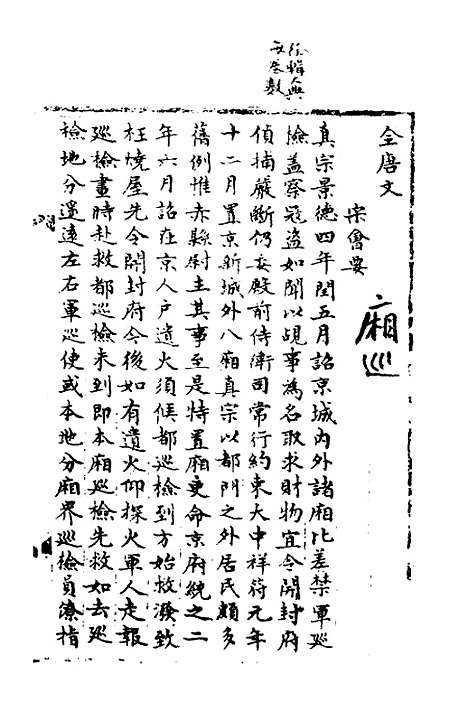 徐輯入兵
五卷數
全唐文
宋會要
廂巡
真宗景德四年閏五月詔京城內外諸廂比差禁軍巡
檢盖察冦盜如聞以覘事為名取求財物宜令開封府
偵捕嚴斷仍委殿前侍衛司常行約束大中祥符元年
十二月置京新城外八廂真宗以都門之外居民頗多
舊例惟赤縣尉主其事至是特置廂吏命京府統之二
年六月詔在京人戶遺火須候都巡檢到方始救潑致
枉燒屋先令開封府今後如有遺火仰探火軍人走報
巡檢畫時赴救都巡檢未到即本廂巡檢先救如去巡
檢地分遥遠左右軍巡使或本地分廂界巡檢員僚指